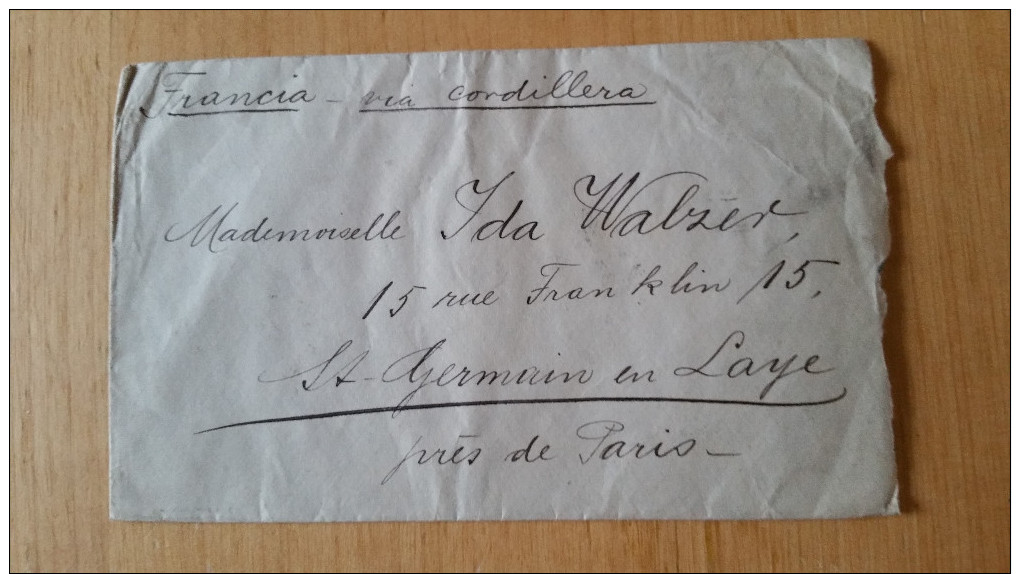 Francia - via cordillera
Mademoiselle Ida Walzer,
15 rue Franklin 15,
St-Germain en Laye
près de Paris -